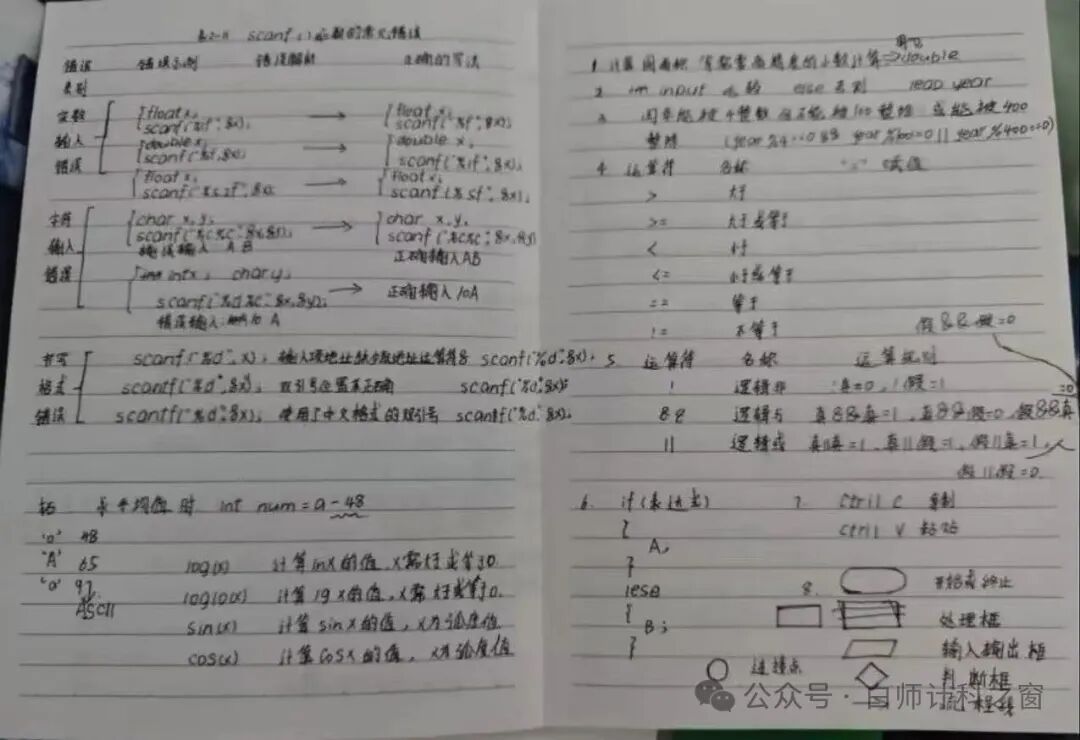 表2-11 scanf()函数的常见错误
错误类别 错误示例 错误解析 正确的写法
实数输入错误
float x; scanf("%f",&x); → float x; scanf("%f",&x);
double x; scanf("%f",&x); → double x; scanf("%lf",&x);
float x; scanf("%5.2f",&x); → float x; scanf("%5f",&x);
字符输入错误
char x,y; scanf("%c%c",&x,&y); → char x,y; scanf("%c%c",&x,&y)
错误输入 A B 正确输入AB
int x; char y;
scanf("%d%c",&x,&y); → 正确输入10A
错误输入: 10 A
书写格式错误
scanf("%d",x); 输入项地址缺少取地址运算符& scanf("%d",&x);
scantf("%d",&x); 双引号位置不正确 scanf("%d",&x);
scantf("%d",&x); 使用了中文格式的双引号 scanf("%d",&x);
求平均值时 int num=a-48
'0' 48
'A' 65 log(x) 计算lnx的值,x需大于或等于0
'a' 97 log10(x) 计算lgx的值,x需大于或等于0.
ASCII
sin(x) 计算sinx的值,x为弧度值
cos(x) 计算cosx的值,x为弧度值
1. 计算圆面积 需要高精度的小数计算⇒double
2. im input else 否则 leap year
3. 闰年能被4整数 但不能被100整除 或能被400
整除 (year%4==0 && year%100!=0 || year%400==0)
4. 运算符 名称 "=" 赋值
> 大于
>= 大于或等于
< 小于
<= 小于或等于
== 等于
!= 不等于 假&&假=0
5. 运算符 名称 运算规则
! 逻辑非 !真=0,!假=1
&& 逻辑与 真&&真=1,真&&假=0,假&&真=0
|| 逻辑或 真||真=1,真||假=1,假||真=1,
假||假=0.
6. if(表达式) 7. Ctril C 复制
{ Ctril V 粘贴
A;
}
lese 8. 开始或终止
{ 处理框
B;
} 输入输出框
连接点 判断框
流程线
公众号·白师计科之窗